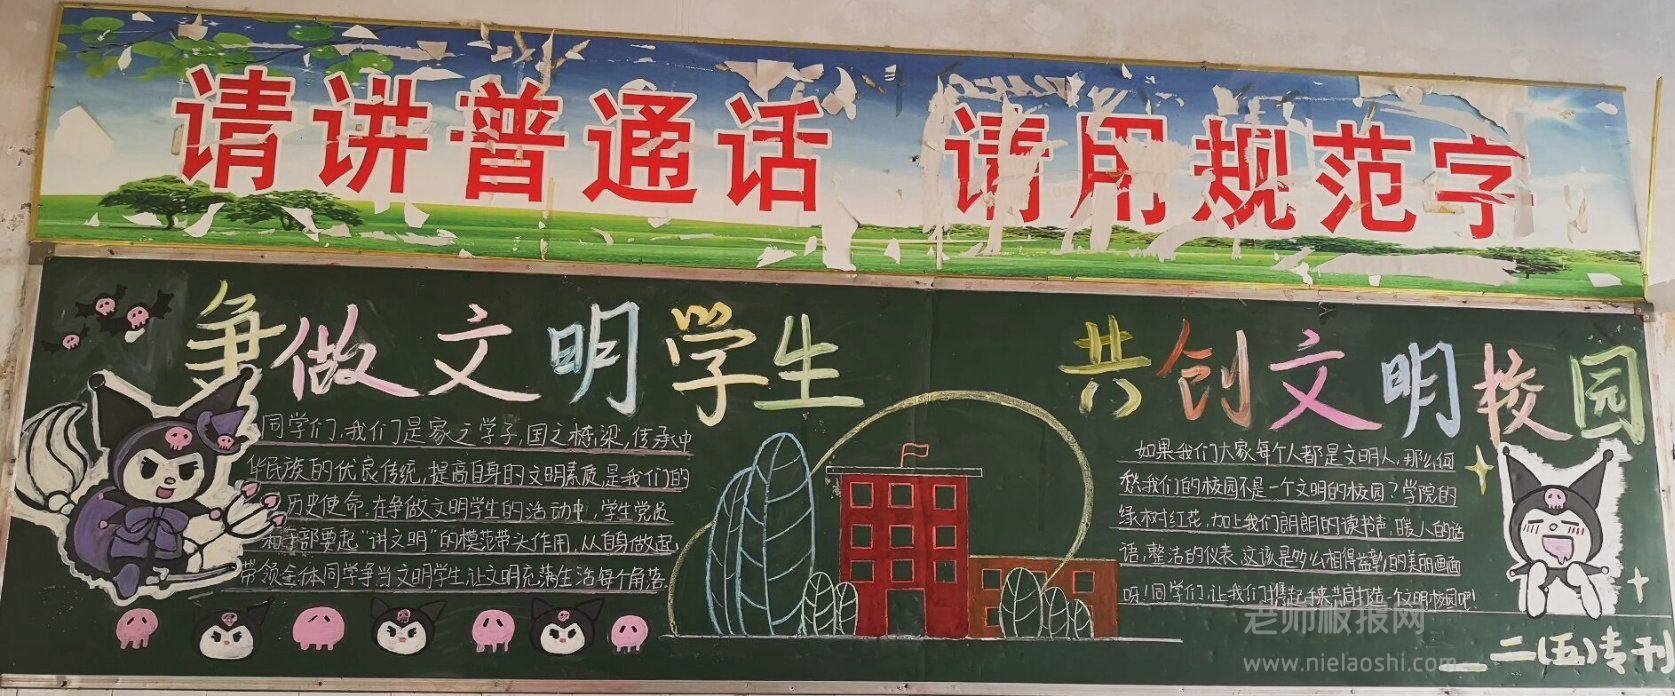 请讲普通话 请用规范字
争做文明学生
同学们,我们是家之学子,国之桥梁,传承中
华民族的优良传统,提高自身的文明素质,是我们的
历史使命,在争做文明学生的活动中,学生党员
和干部要起“讲文明”的模范带头作用,从自身做起,
带领全体同学争当文明学生,让文明充满生活每个角落.
共创文明校园
如果我们大家每个人都是文明人,那么何
愁我们的校园不是一个文明的校园?学院的
绿树红花,加上我们朗朗的读书声,暖人的话
语,整洁的仪表,这该是多么相得益彰的美丽画面
呀!同学们,让我们携起手来共同打造一个文明校园吧!
二(五)专刊
老师板报网
www.nielaoshi.com